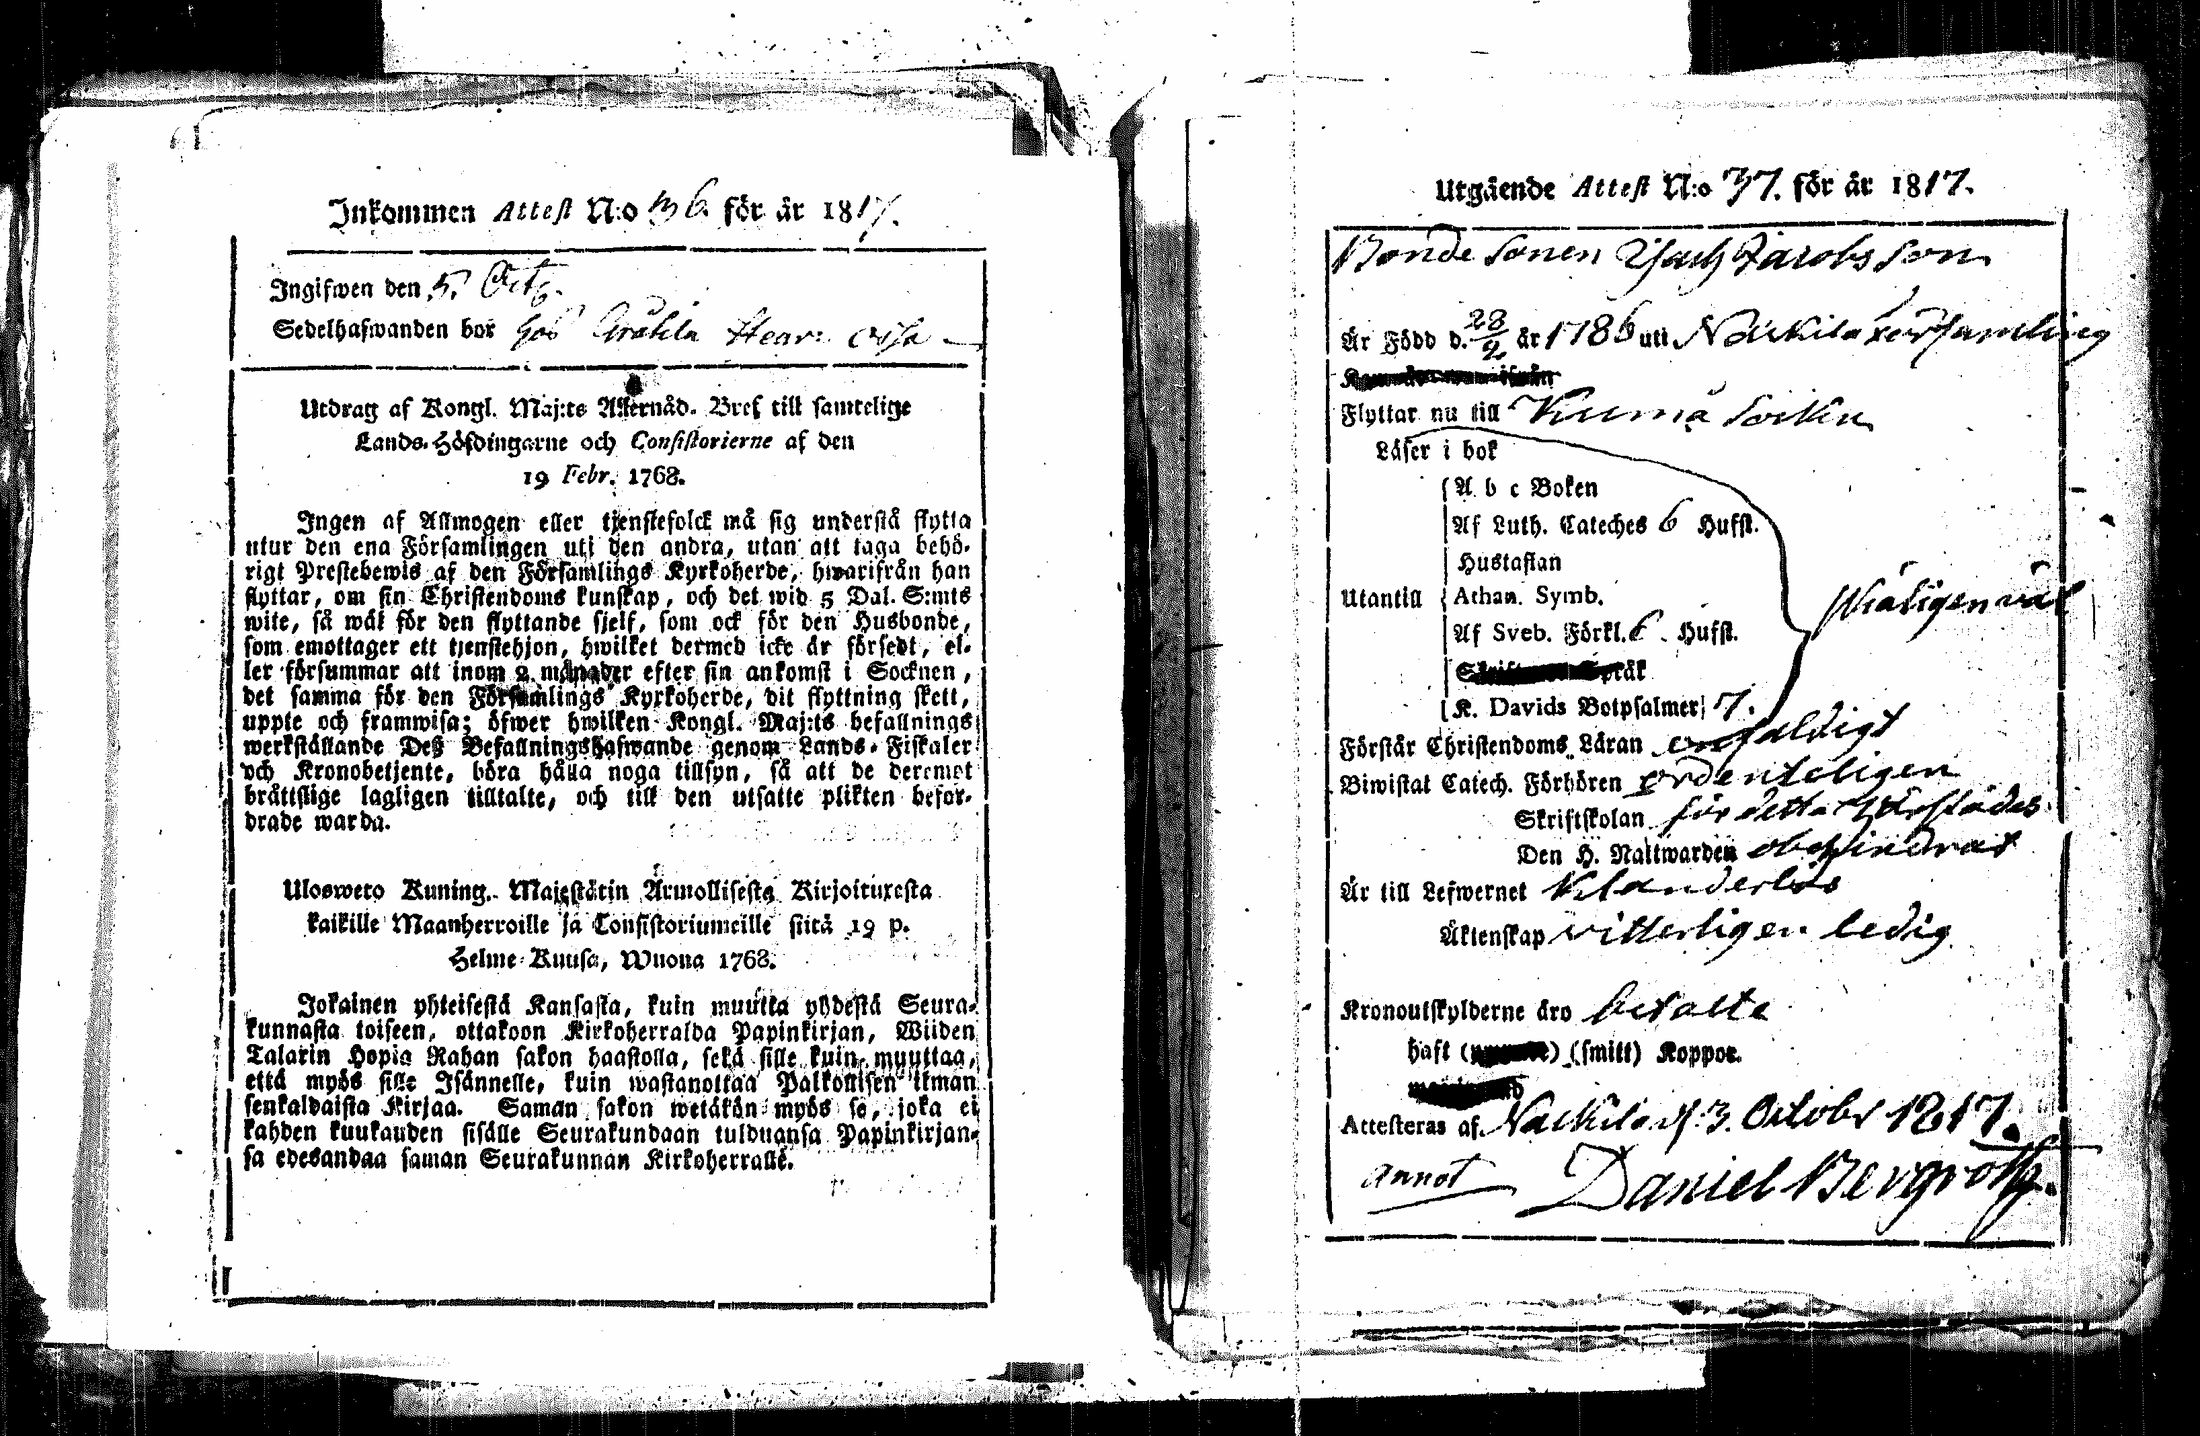 Inkommen Attest N:o 36. för år 1817.
Ingifwen den 5. Octb.
Sedelhafwanden bor hos
Utdrag af Kongl. Maj:ts Allernåd. Bref till samtelige
Lands-Höfdingarne och Consistorierne af den
19 Febr. 1768.
Ingen af Allmogen eller tjenstefolck må sig understå flytta
utur den ena Församlingen uti den andra, utan att taga behö-
rigt Prestebewis af den Församlings Kyrkoherde, hwarifrån han
flyttar, om sin Christendoms kunskap, och det wid 5 Dal. S:mts
wite, så wäl för den flyttande sjelf, som ock för den Husbonde,
som emottager ett tjenstehjon, hwilket dermed icke är försedt, el-
ler försummar att inom 2 månader efter sin ankomst i Socknen,
det samma för den Församlings Kyrkoherde, dit flyttning skett,
uppte och framwisa; öfwer hwilken Kongl. Maj:ts befallnings
werkställande Deß Befallningshafwande genom Lands-Fiskaler
och Kronobetjente, böra hålla noga tillsyn, så att de deremot
bråttslige lagligen tilltalte, och till den utsatte plikten befor-
drade warda.
Ulosweto Kuning. Majestätin Armollisesta Kirjoituxesta
kaikille Maanherroille ja Consistoriumeille siitä 19 p.
Helme-Kuusa, Wuona 1768.
Jokainen yhteisestä Kansasta, kuin muutta yhdestä Seura-
kunnasta toiseen, ottakoon Kirkoherralda Papinkirjan, Wiiden
Talarin Hopia Rahan sakon haastolla, sekä sille kuin muuttaa,
että myös sille Isännelle, kuin wastanottaa Palkollisen ilman
senkaldaista Kirjaa. Saman sakon wetäkön myös se, joka ei
kahden kuukauden sisälle Seurakundaan tulduansa Papinkirjan-
sa edesandaa saman Seurakunnan Kirkoherralle.
Utgående Attest N:o 37. för år 1817.
Bonde Sonen Isach Jacobs son
Är Född d. 28/2 år 1786 uti Nackila församling
Flyttar nu till Kumå Sockn
Läser i bok
A b c Boken
Af Luth. Cateches 6 Hufst.
Hustaflan
Utantill Athan. Symb.
Af Sveb. Förkl. 6. Hufst.
K. Davids Botpsalmer 7.
Förstår Christendoms Läran enfaldigt
Biwistat Catech. Förhören ordenteligen
Skriftskolan för detta
Den H. Nattwarden obehindrat
Är till Lefwernet Klanderlös
Äktenskap witterligen ledig
Kronoutskylderne äro betalte
haft (smitt) Koppor.
Attesteras af Nackila d. 3. October 1817.
annot Daniel Bergroth.